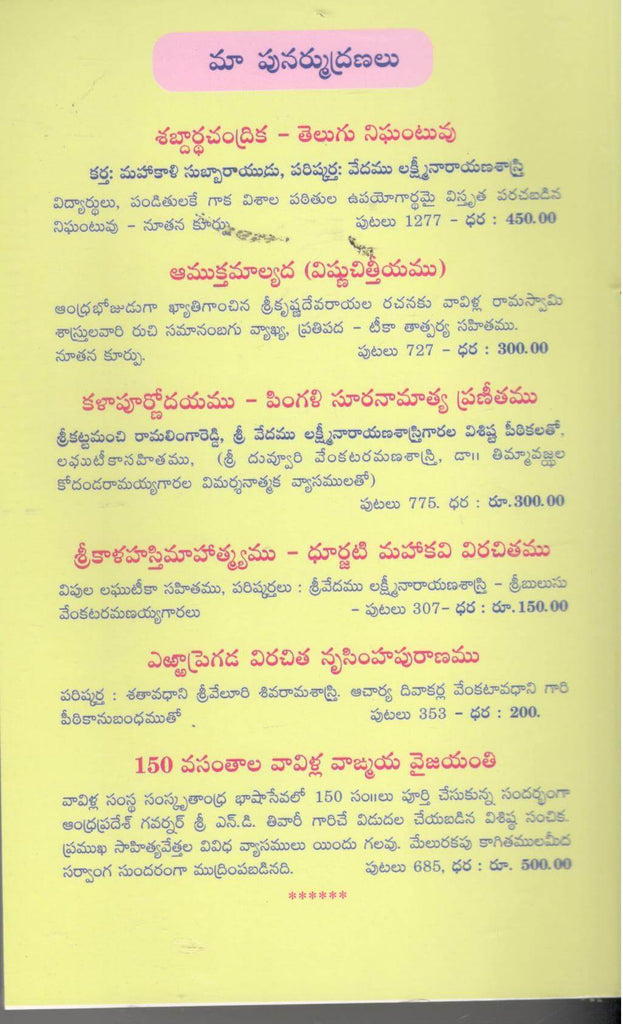 మా పునర్ముద్రణలు
శబ్దార్థచంద్రిక - తెలుగు నిఘంటువు
కర్త: మహాకాళి సుబ్బారాయుడు, పరిష్కర్త: వేదము లక్ష్మీనారాయణశాస్త్రి
విద్యార్థులు, పండితులకే గాక విశాల పఠితుల ఉపయోగార్థమై విస్తృత పరచబడిన
నిఘంటువు - నూతన కూర్పు. పుటలు 1277 - ధర : 450.00
ఆముక్తమాల్యద (విష్ణుచిత్తీయము)
ఆంధ్రభోజుడుగా ఖ్యాతిగాంచిన శ్రీకృష్ణదేవరాయల రచనకు వావిళ్ల రామస్వామి
శాస్త్రులవారి రుచి సమానంబగు వ్యాఖ్య, ప్రతిపద - టీకా తాత్పర్య సహితము.
నూతన కూర్పు. పుటలు 727 - ధర : 300.00
కళాపూర్ణోదయము - పింగళి సూరనామాత్య ప్రణీతము
శ్రీకట్టమంచి రామలింగారెడ్డి, శ్రీ వేదము లక్ష్మీనారాయణశాస్త్రిగారల విశిష్ట పీఠికలతో,
లఘుటీకాసహితము, (శ్రీ దువ్వూరి వేంకటరమణశాస్త్రి, డా॥ తిమ్మావజ్ఝల
కోదండరామయ్యగారల విమర్శనాత్మక వ్యాసములతో)
పుటలు 775. ధర : రూ.300.00
శ్రీకాళహస్తిమాహాత్మ్యము - ధూర్జటి మహాకవి విరచితము
విపుల లఘుటీకా సహితము, పరిష్కర్తలు : శ్రీవేదము లక్ష్మీనారాయణశాస్త్రి - శ్రీబులుసు
వేంకటరమణయ్యగారలు - పుటలు 307- ధర : రూ.150.00
ఎఱ్ఱాప్రెగడ విరచిత నృసింహపురాణము
పరిష్కర్త : శతావధాని శ్రీవేలూరి శివరామశాస్త్రి. ఆచార్య దివాకర్ల వేంకటావధాని గారి
పీఠికానుబంధముతో పుటలు 353 - ధర : 200.
150 వసంతాల వావిళ్ల వాఙ్మయ వైజయంతి
వావిళ్ల సంస్థ సంస్కృతాంధ్ర భాషాసేవలో 150 సం॥లు పూర్తి చేసుకున్న సందర్భంగా
ఆంధ్రప్రదేశ్ గవర్నర్ శ్రీ ఎన్.డి. తివారీ గారిచే విడుదల చేయబడిన విశిష్ఠ సంచిక.
ప్రముఖ సాహిత్యవేత్తల వివిధ వ్యాసములు యిందు గలవు. మేలురకపు కాగితములమీద
సర్వాంగ సుందరంగా ముద్రింపబడినది. పుటలు 685, ధర : రూ. 500.00
******